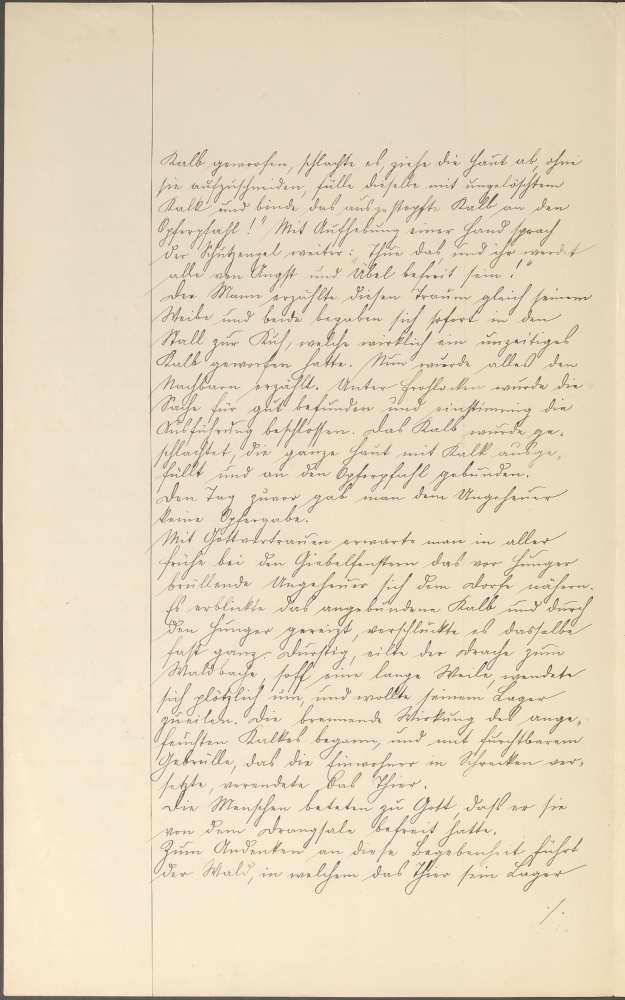 Kalb geworfen, schlachte es, ziehe die Haut ab, ohne
sie aufzuschneiden, fülle dieselbe mit ungelöschtem
Kalk und binde das ausgestopfte Kalb an den
Opferpfahl!" Mit Aufhebung einer Hand sprach
der Schutzengel weiter: „Thue das, und ihr werdet
alle von Angst und Übel befreit sein!"
Der Mann erzählte diesen Traum gleich seinem
Weibe und beide begaben sich sofort in den
Stall zur Kuh, welche wirklich ein unzeitiges
Kalb geworfen hatte. Nun wurde alles den
Nachbarn erzählt. Unter Frohlocken wurde die
Sache für gut befunden und einstimmig die
Ausführung beschlossen. Das Kalb wurde ge-
schlachtet, die ganze Haut mit Kalk ausge-
füllt und an den Opferpfahl gebunden.
Den Tag zuvor gab man dem Ungeheuer
keine Opfergabe.
Mit Gottvertrauen erwarte man in aller
frühe bei den Giebelfenstern das vor Hunger
brüllende Ungeheuer sich dem Dorfe nähern.
Es erblickte das angebundene Kalb und durch
den Hunger gereizt, verschluckte es dasselbe
fast ganz. Durstig, eilte der Drache zum
Waldbache, soff eine lange Weile, wendete
sich plötzlich um, und wollte seinem Lager
zueilen. Die brennende Wirkung des ange-
feuchten Kalkes begann, und mit furchtbarem
Gebrülle, das die Einwohner in Schrecken ver-
setzte, verendete das Thier.
Die Menschen beteten zu Gott, daß er sie
von dem Drangsale befreit hatte.
Zum Andenken an diese Begebenheit führt
der Wald, in welchem das Thier sein Lager
./.